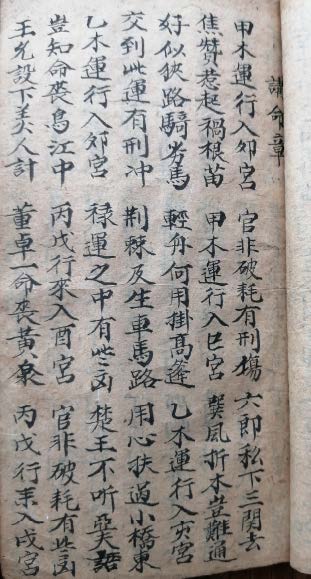 命章
甲木運行入夘宮 官非破耗有刑傷 六郎私下三関去
焦贊惹起禍根苗 甲木運行入巳宮 巽風折木豈難通
好似狹路騎劣馬 輕舟何用掛高篷 乙木運行入亥宮
交到此運有刑冲 荆棘及生車馬路 用心扶過小橋東
乙木運行入夘宮 祿運之中有些凶 楚王不听語
豈知命喪烏江中 丙戊行來入酉宮 官非破耗有些凶
王允設下美人計 董卓一命喪黃泉 丙戊行来入戌宮